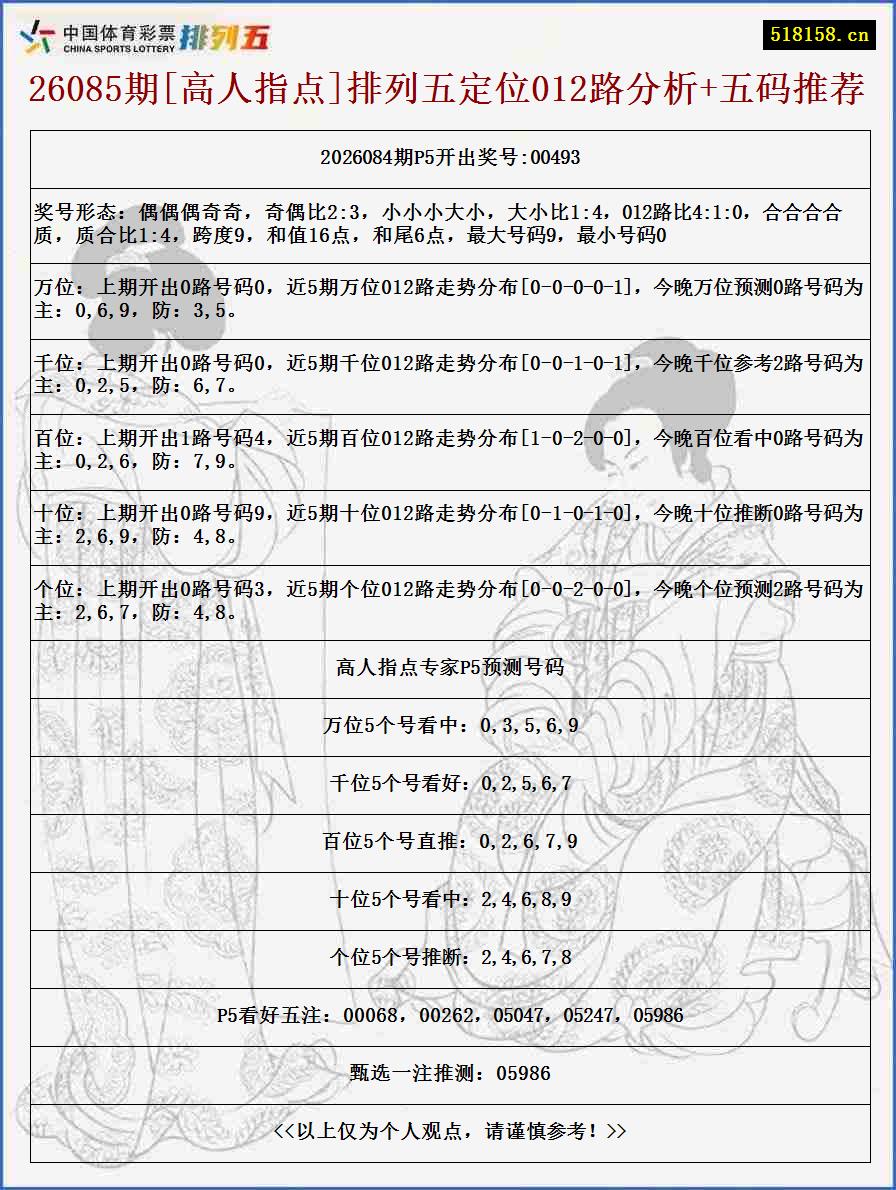 中国体育彩票
CHINA SPORTS LOTTERY
排列五
518158.cn
26085期[高人指点]排列五定位012路分析+五码推荐
2026084期P5开出奖号:00493
奖号形态：偶偶偶奇奇，奇偶比2:3，小小小大小，大小比1:4，012路比4:1:0，合合合合
质，质合比1:4，跨度9，和值16点，和尾6点，最大号码9，最小号码0
万位：上期开出0路号码0，近5期万位012路走势分布[0-0-0-0-1]，今晚万位预测0路号码为
主：0,6,9，防：3,5。
千位：上期开出0路号码0，近5期千位012路走势分布[0-0-1-0-1]，今晚千位参考2路号码为
主：0,2,5，防：6,7。
百位：上期开出1路号码4，近5期百位012路走势分布[1-0-2-0-0]，今晚百位看中0路号码为
主：0,2,6，防：7,9。
十位：上期开出0路号码9，近5期十位012路走势分布[0-1-0-1-0]，今晚十位推断0路号码为
主：2,6,9，防：4,8。
个位：上期开出0路号码3，近5期个位012路走势分布[0-0-2-0-0]，今晚个位预测2路号码为
主：2,6,7，防：4,8。
高人指点专家P5预测号码
万位5个号看中：0,3,5,6,9
千位5个号看好：0,2,5,6,7
百位5个号直推：0,2,6,7,9
十位5个号看中：2,4,6,8,9
个位5个号推断：2,4,6,7,8
P5看好五注：00068，00262，05047，05247，05986
甄选一注推测：05986
<<以上仅为个人观点，请谨慎参考！>>